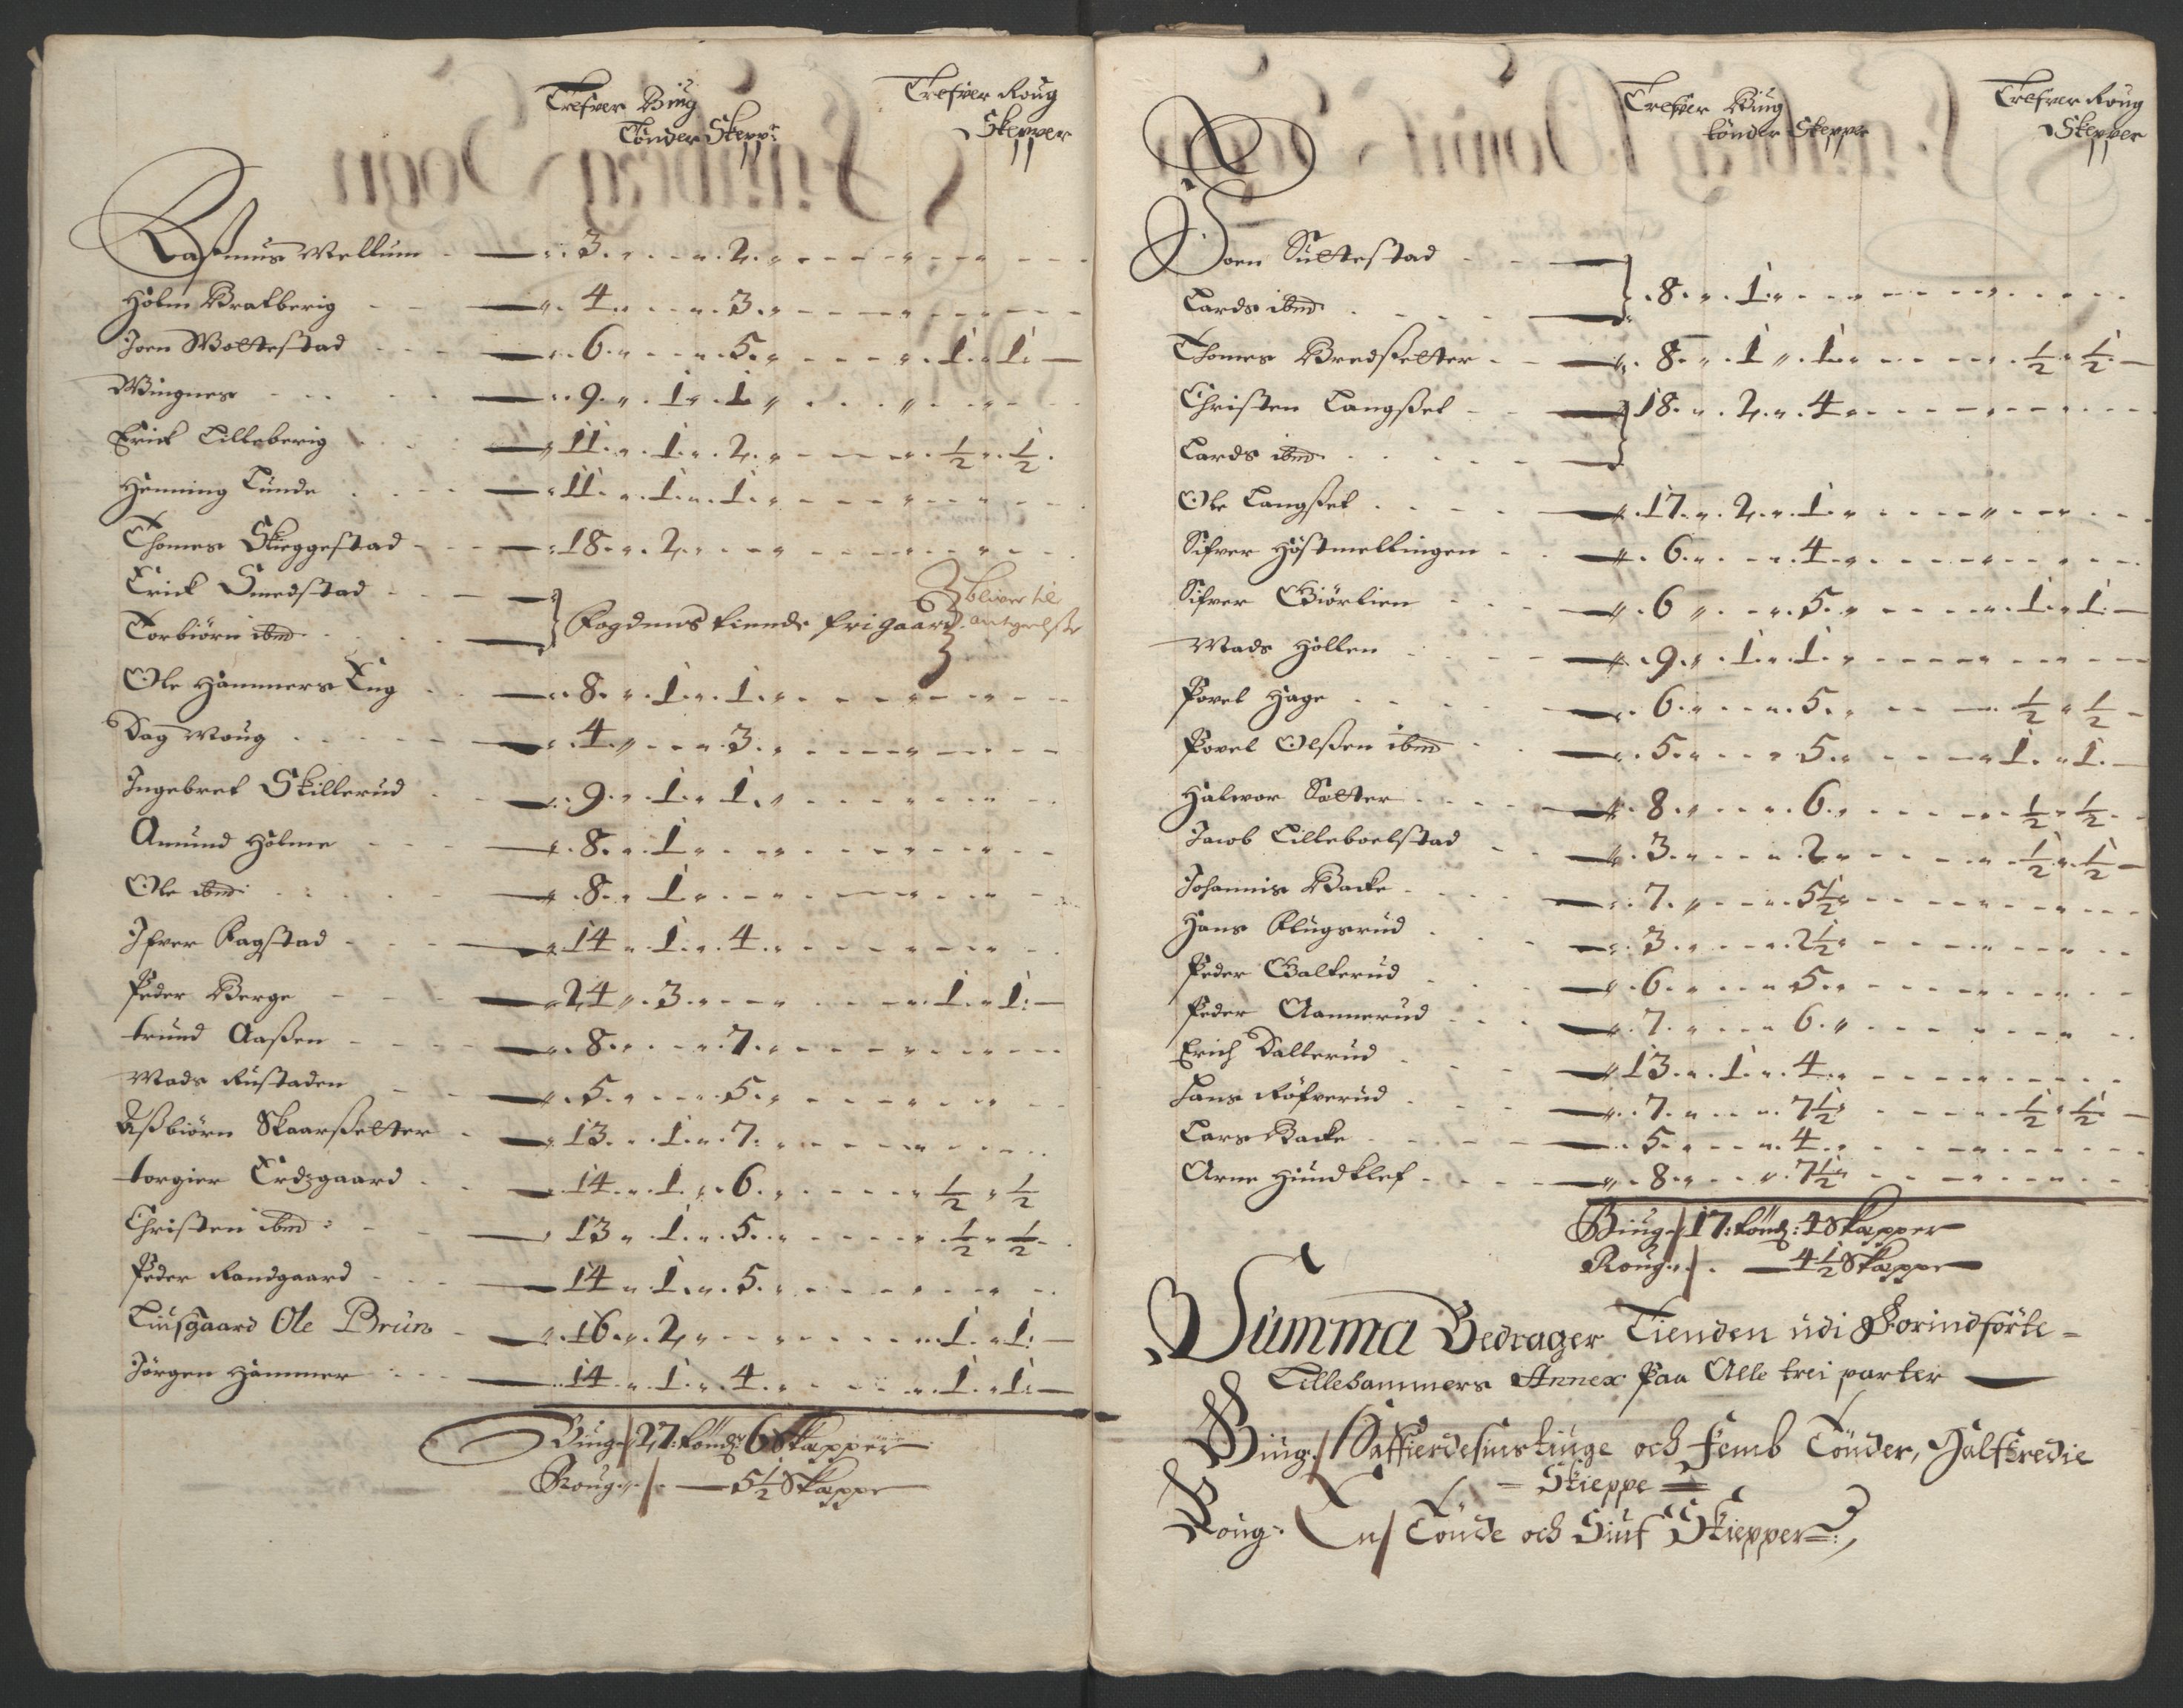 Trefver Biug Trefver Roug
Tønder Skepp: Skepper
Rasmus Mellum 3. 2.
Holm Bratberig 4. 3.
Joen Woldestad 6. 5. 1. 1.
Wingnes 9. 1. 1
Erick Lilleberig 11. 1. 2. ½ ½
Henning Lunde 11. 1. 1.
Thomes Skieggestad 18. 2.
Erick Smedstad bliver til
Torbiørn ibm Fogdens tiende fri gaard. antegnelsse
Ole Hammers Eng 8. 1. 1.
Dag Moug 4. 3.
Ingebret Skillerud 9. 1. 1.
Amund Holme 8. 1
Ole ibm 8. 1
Ifver Fagstad 14 1. 4.
Peder Berge 24 3. 1. 1.
trund Aaßen 8. 7.
Mads Rustaden 5. 5.
Aßbiørn Skaarßetter 13. 1. 7.
torgier Erdzgaard 14. 1. 6. ½ ½
Christen ibm: 13 1. 5. ½ ½
Peder Randgaard 14 1. 5.
Liusgaard Ole Brun 16. 2. 1. 1.
Jørgen Hammer 14 1. 4. 1. 1.
Biug 27: tønd: 6 Skæpper
Roug 5½ Skæppe
Trefver Biug Trefver Roug
tønder Skepper Skepper
Joen Sultestad 8. 1.
Lards ibm
Thomes Bredßetter 8. 1. 1. ½ ½
Christen Langßet 18. 2. 4
Lards ibm
Ole Langßet 17. 2. 1.
Sifver Høstmellingen 6. 4.
Sifver Giørlien 6 5. 1. 1.
Mads Hollen 9. 1. 1.
Povel Hage 6. 5. ½ ½
Povel Olßen ibm 5. 5. 1. 1.
Halvor Sætter 8. 6. ½ ½
Jacob Lilleboelstad 3. 2 ½ ½
Johannis Backe 7. 5½
Hans Klugsrud 3. 2½
Peder Galterud 6. 5.
Peder Aannerud 7. 6.
Erich Dallerud 13. 1. 4.
Hans Røfverud 7. 7½ ½ ½
Lars Backe 5. 4.
Arne Hundklef 8. 7½
Biug 17: tønd: 4 Skæpper
Roug 4½ Skæppe
Summa Bedrager Tienden udi Forindførte
Lillehammers Annex Paa Alle trei parter
Biug: Saffierdesinstiuge och Femb Tønder, Halftredie
Skieppe
Roug: En Tønde och Siuf Skiepper